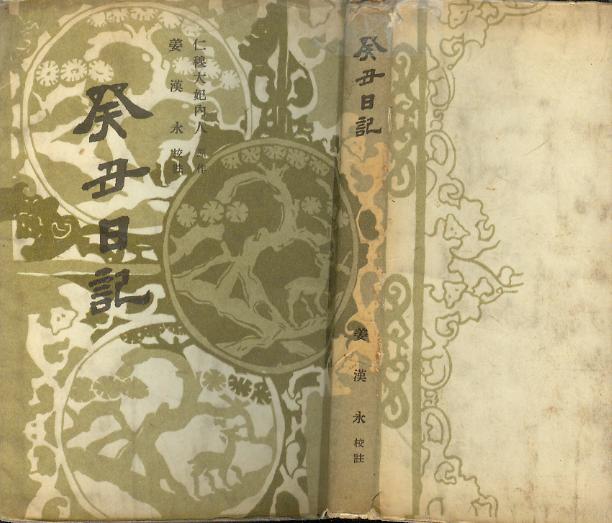 仁穆大妃內人 作
姜漢永 校註
癸丑日記
癸丑日記
姜漢永 校註